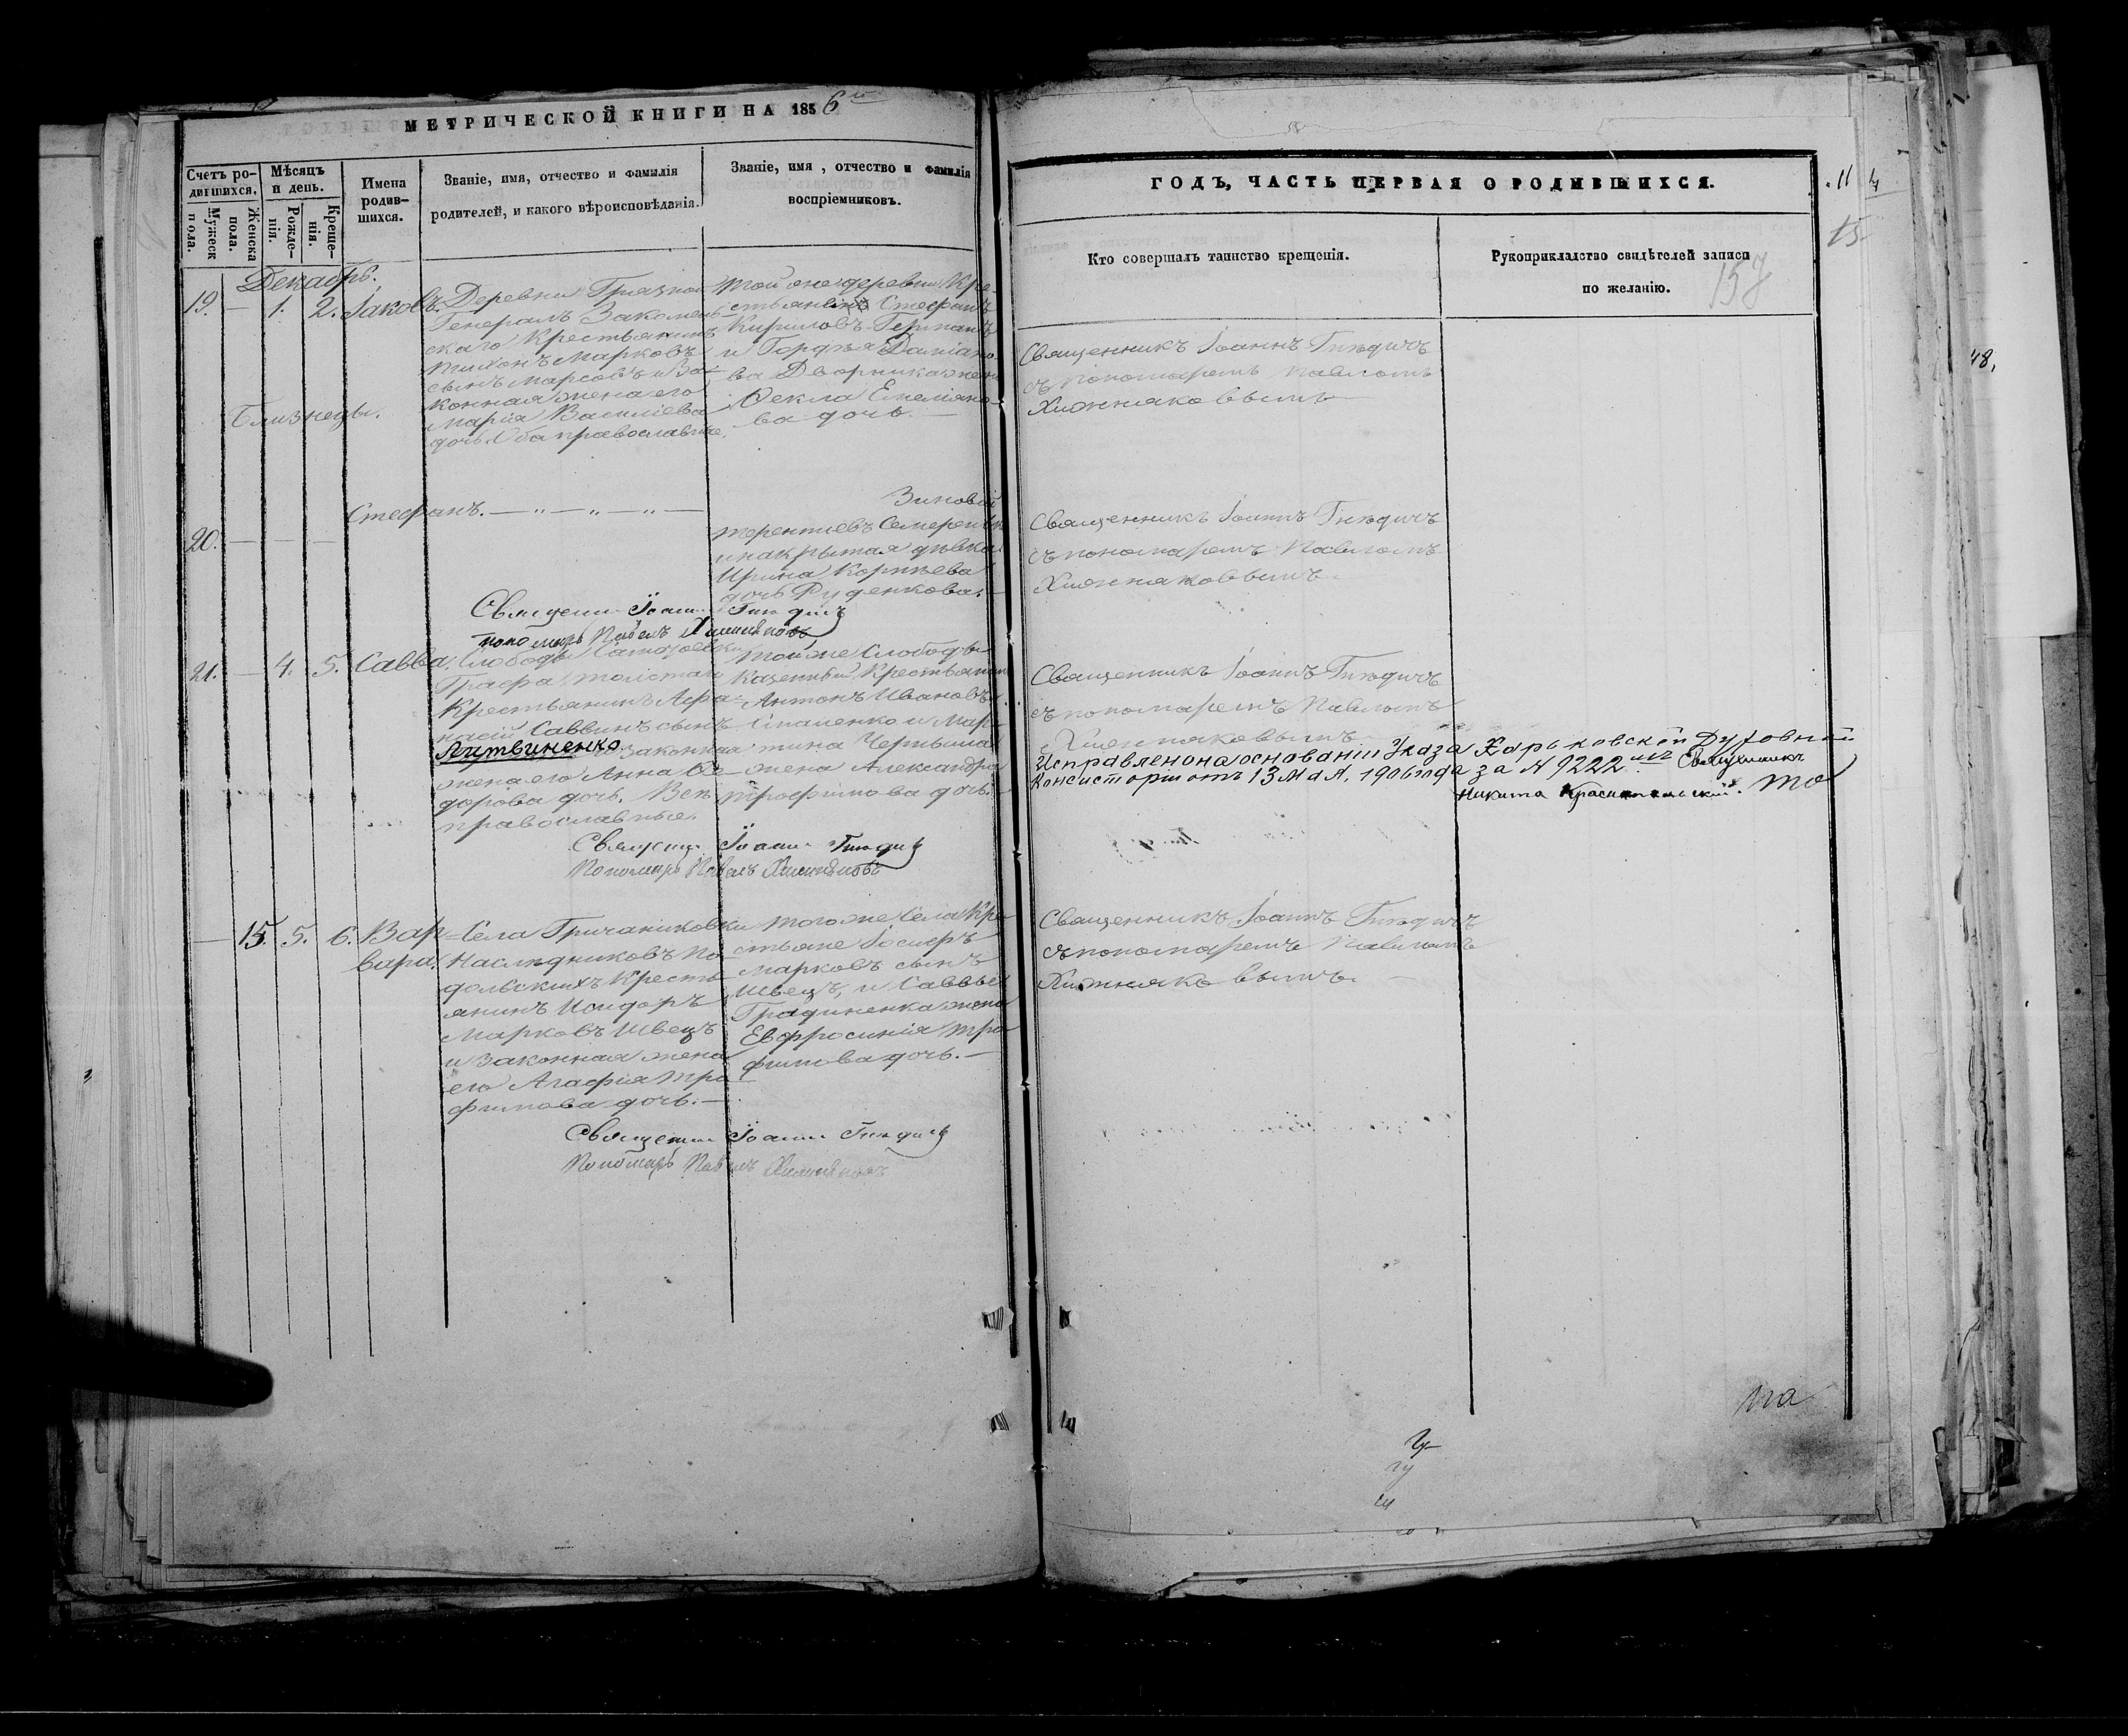 МЕТРИЧЕСКОЙ КНИГИ НА 1856
Счетъ ро-
дившихся.
Мужеск
пола.
Женска
пола.
Мѣсяцъ
и день.
Рожде-
нія.
Креще-
нія.
Имена
родив-
шихся.
Званіе, имя, отчество и фамилія
родителей, и какого вѣроисповѣданія.
Званіе, имя, отчество и фамилія
воспріемниковъ.
Декабрь.
19. — 1. 2. Іаковъ.
Близнецы.
Деревни Грязной
Генерала
скаго Крестьянинъ
Тихонъ Марковъ
сынъ и За-
конная жена его
Марія Василіева
дочь. Оба православные.
Той же деревни Кре-
стьянинъ Стефанъ
Кириловъ
и Гордѣя Даміано-
ва Дворника жена
Ѳекла Емеліано-
ва дочь. —
20. — — — Стефанъ. — „ — „ — „ —
Зиновій
Терентіевъ
и накрытая дѣвка
Ирина Корнѣева
дочь Руденкова.
Священникъ Іоаннъ Гнѣдичъ
Пономарь Павелъ Хижняковъ
21. — 4. 5. Савва.
Слободы
Графа Толстаго
Крестьянинъ Афа-
насій Саввинъ сынъ
Литвиненко и законная
жена его Анна Ѳе-
дорова дочь. Всѣ
православные.
Той же Слободы
Казенный Крестьянинъ
Антонъ Ивановъ
и Мар-
тина
жена Александра
Трофимова дочь.
Священникъ Іоаннъ Гнѣдичъ
Пономарь Павелъ Хижняковъ
— 15. 5. 6. Вар-
вара.
Села Гричаниковки
Наслѣдниковъ По-
дольскихъ Кресть-
янинъ Исидоръ
Марковъ Швецъ
и законная жена
его Агафія Тро-
фимова дочь. —
Того же Села Кре-
стьяне Іосифъ
Марковъ сынъ
Швецъ, и Саввы
Градиненка жена
Евфросинія Тро-
фимова дочь. —
Священникъ Іоаннъ Гнѣдичъ
Пономарь Павелъ Хижняковъ
ГОДЪ, ЧАСТЬ ПЕРВАЯ О РОДИВШИХСЯ.
Кто совершалъ таинство крещенія.
Рукоприкладство свидѣтелей записи
по желанію.
15
48,
Священникъ Іоаннъ Гнѣдичъ
съ пономаремъ Павломъ
Хижняковымъ
Священникъ Іоаннъ Гнѣдичъ
съ пономаремъ Павломъ
Хижняковымъ.
Священникъ Іоаннъ Гнѣдичъ
съ пономаремъ Павломъ
Хижняковымъ
Исправлено на основаніи Указа Харьковской Духовной
Консисторіи отъ 13 Мая, 1906 года за № 9222мъ. Священникъ
Никита
Священникъ Іоаннъ Гнѣдичъ
съ пономаремъ Павломъ
Хижняковымъ.